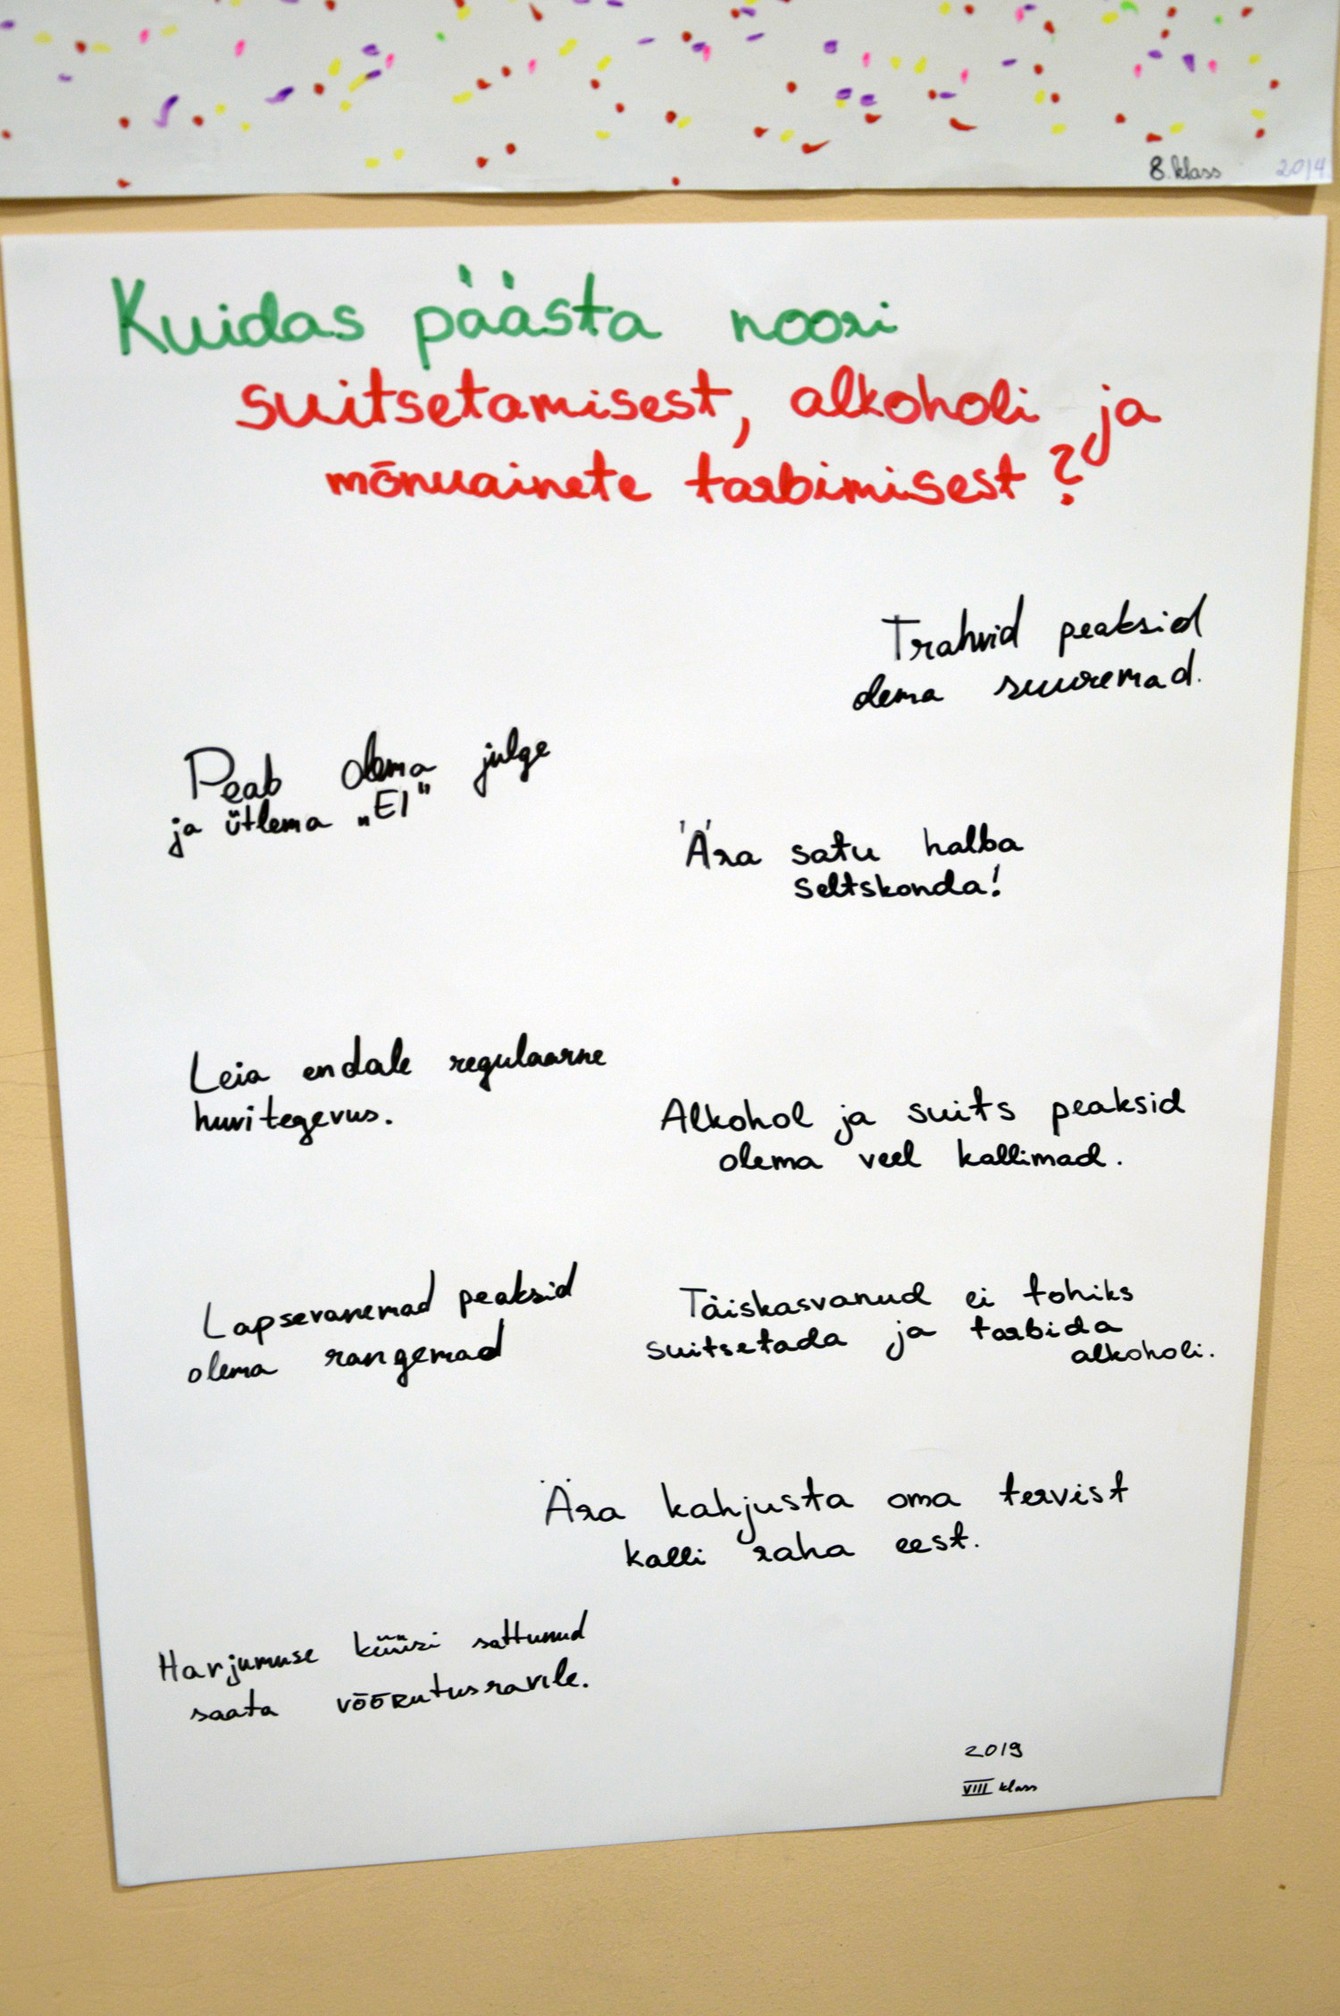 8.klass 2014
Kuidas päästa noori
suitsetamisest, alkoholi ja
mõnuainete tarbimisest?
Trahvid peaksid
olema suuremad.
Peab olema julge
ja ütlema „EI"
Ära satu halba
seltskonda!
Leia endale regulaarne
huvitegevus.
Alkohol ja suits peaksid
olema veel kallimad.
Lapsevanemad peaksid
olema rangemad
Täiskasvanud ei tohiks
suitsetada ja tarbida
alkoholi.
Ära kahjusta oma tervist
kalli raha eest.
Harjumuse küüsi sattunud
saata võõrutusravile.
2019
VIII klass